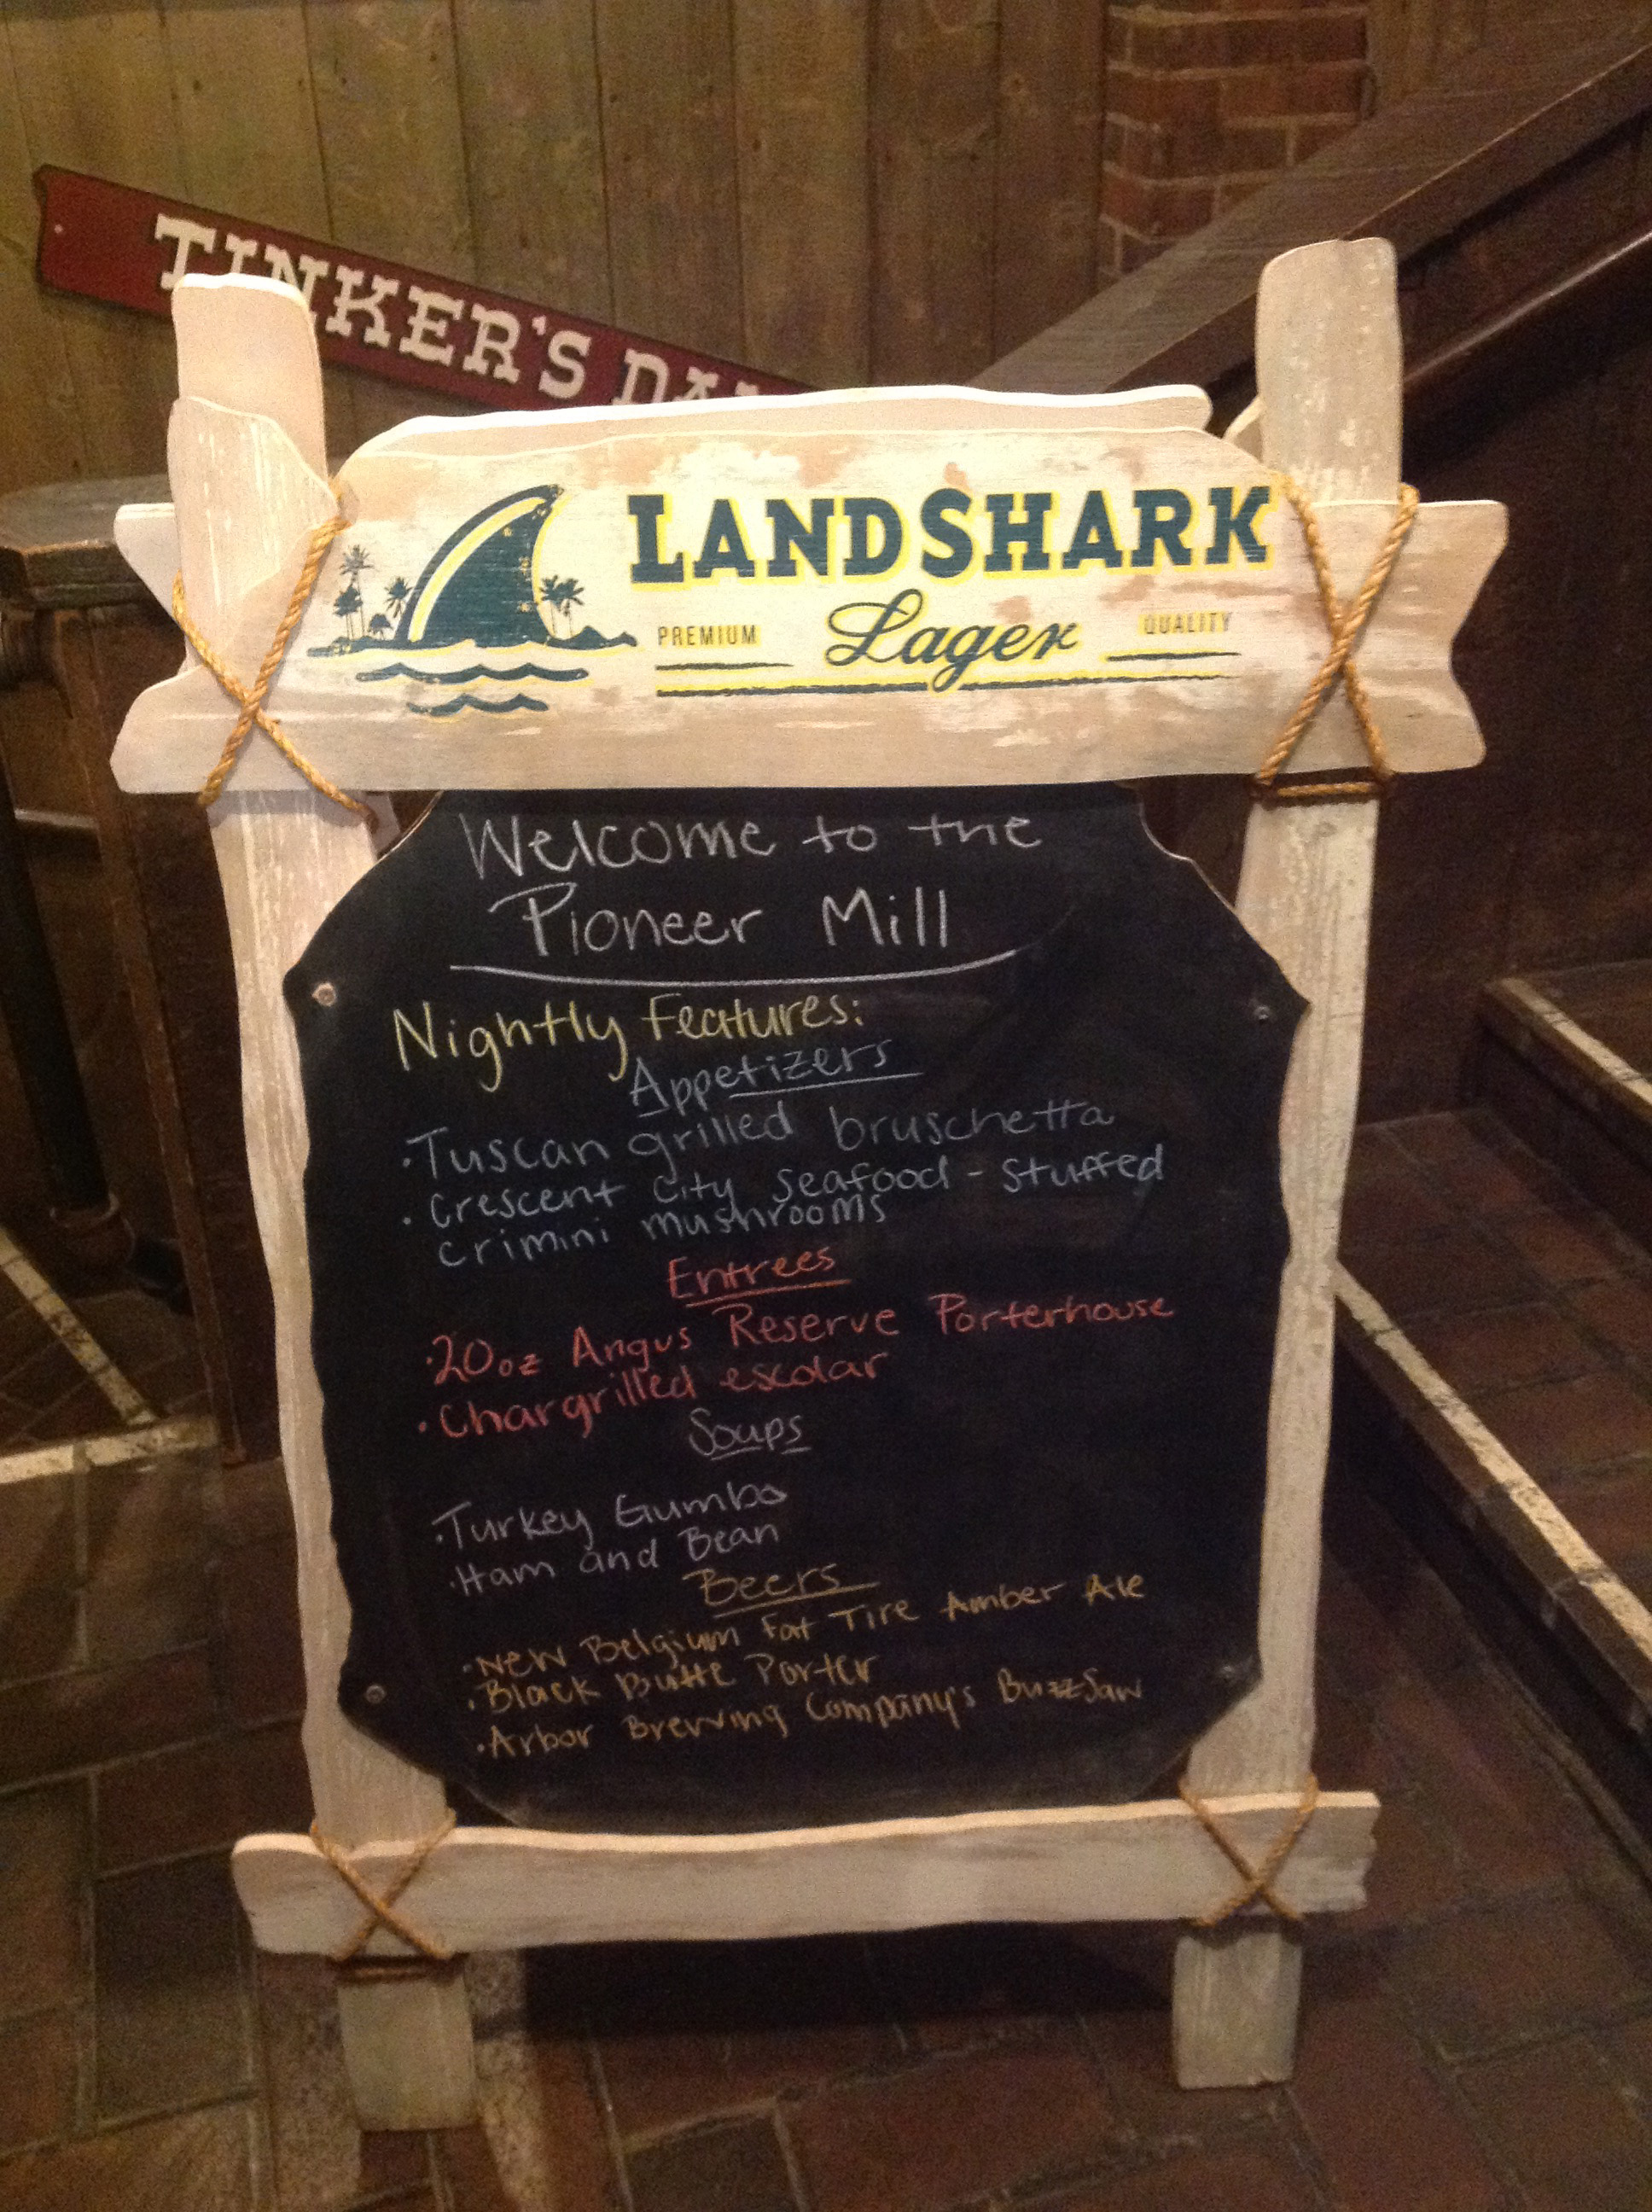 TINKER'S
LANDSHARK
PREMIUM Lager QUALITY
Welcome to the
Pioneer Mill
Nightly Features:
Appetizers
·Tuscan grilled bruschetta
·Crescent City Seafood-Stuffed
crimini mushrooms
Entrees
·20oz Angus Reserve Porterhouse
·Chargrilled escolar
Soups
·Turkey Gumbo
·Ham and Bean
Beers
·New Belgium Fat Tire Amber Ale
·Black Butte Porter
·Arbor Brewing Company's BuzzSaw